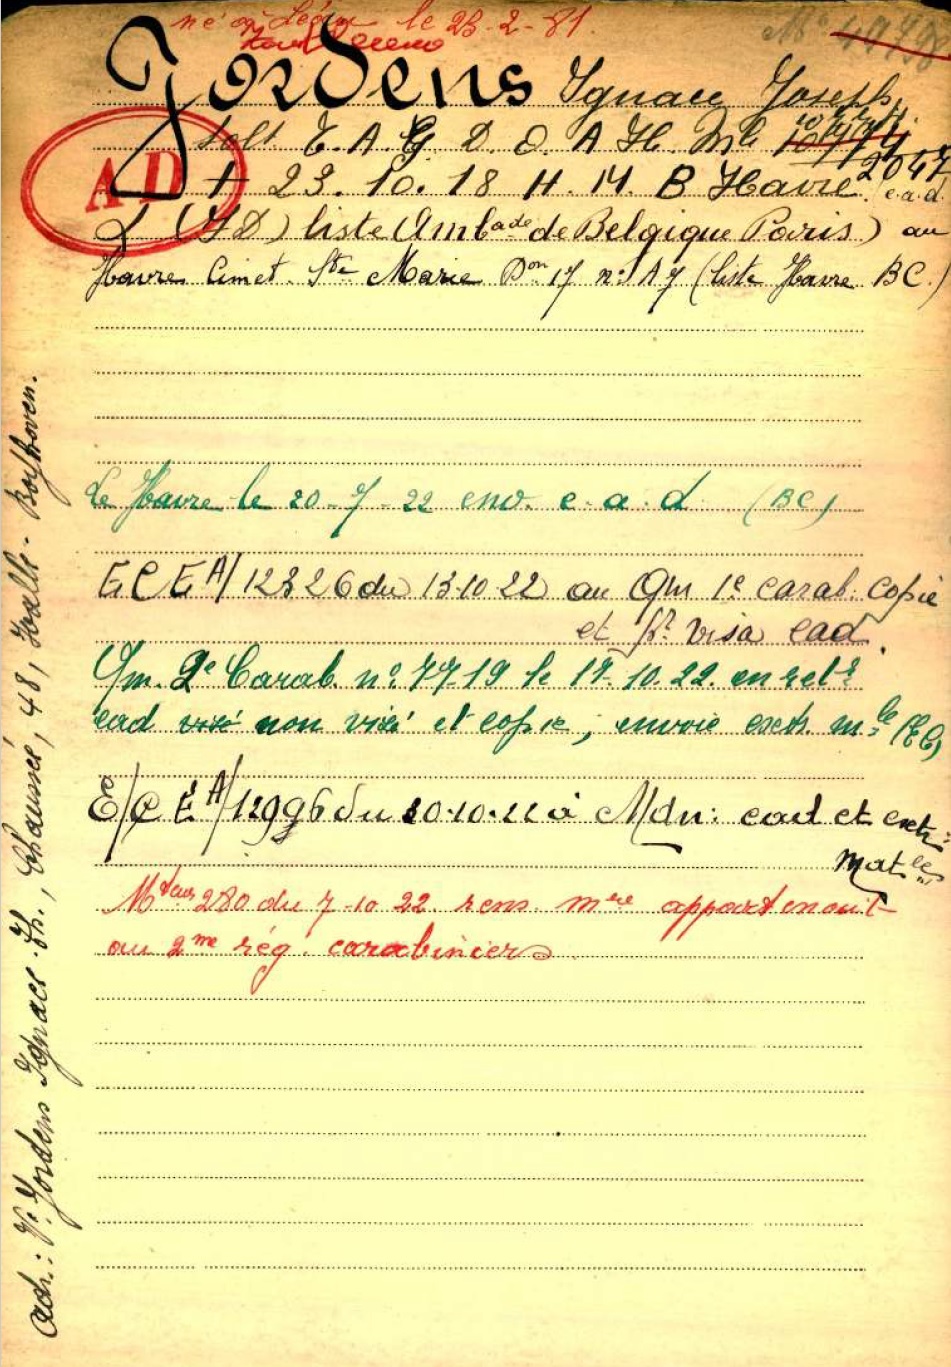 né à le 23-2-81.
Jordens Ignace Joseph
AD
solt E.A.G D.O.A H. Mle 2047
† 23.10.18 H.M.B Havre. (e.a.d.
(FD) liste Ambade de Belgique Paris) au
Havre Cimet. Ste Marie Don 17 no: A7 (liste Havre BC.)
Le Havre le 20-7-22 env. e.a.d (BC)
ECEA/12326 du 13-10-22 au Qm 1e carab. copie
et pr visa ead.
Qm. 2e Carab. no: 7719 le 17.10.22. en ret:
ead non visé et copie; envoie extr. mle (EC)
E/CEA/12996 du 20.10.22 à Mdn: ead et extr:
Matle
280 du 7-10-22 rens. mre appartenait
au 2me rég. carabiniers
adr.: Ve Jordens Ignace Th., Chaussée, 48, Halle-Boyhoven.